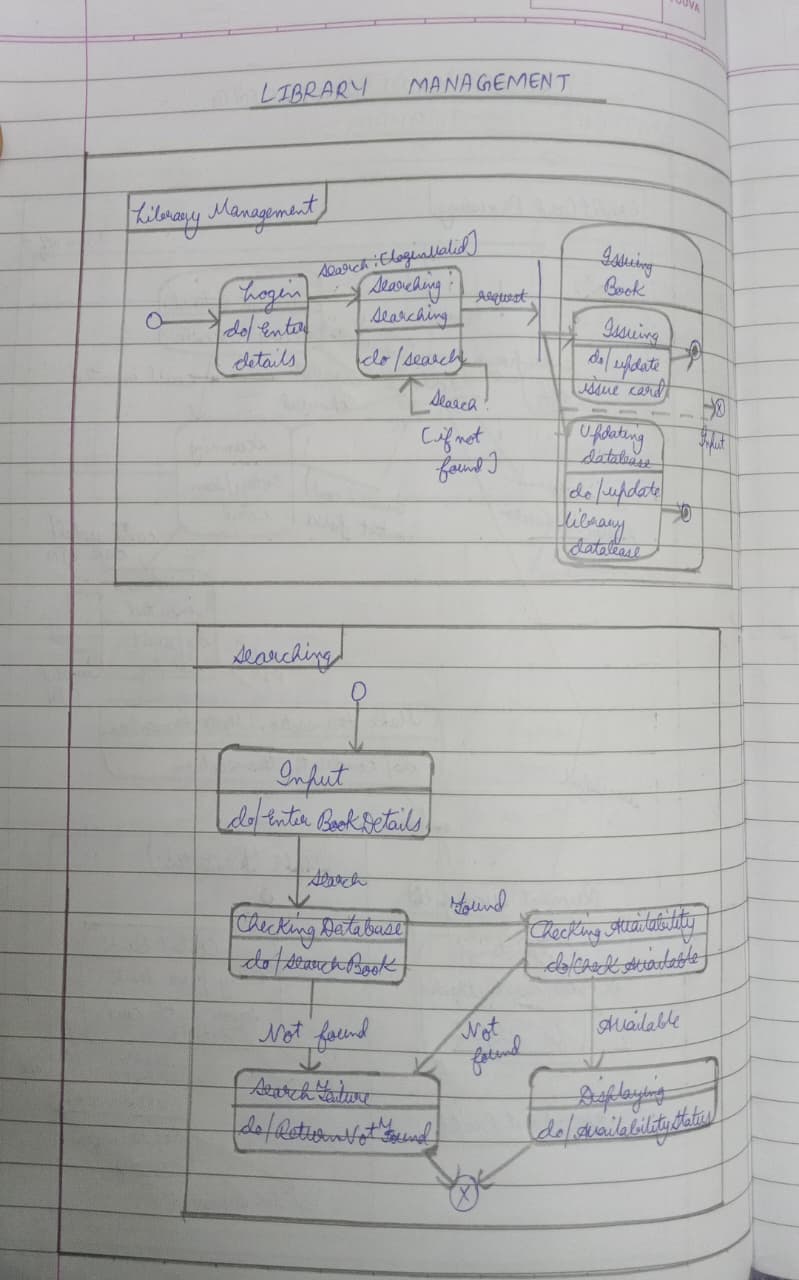 LIBRARY MANAGEMENT
Library Management
Search:[loginValid]
Login
do/Enter
details
Searching:
searching
do/search
request
search
[if not
found]
Issuing
Book
Issuing
do/update
issue card
Input
Updating
database
do/update
library
database
Searching
Input
do/Enter BookDetails
search
Checking Database
do/searchBook
Found
Checking Availability
do/Check Available
Not found
Not
found
Available
do/ReturnNotFound
Displaying
do/AvailabilityStatus
X